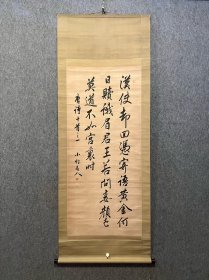 漢使却回憑寄語黄金何
日贖蛾眉君王若問妾顔色
莫道不如宮裏時
唐詩十首之一